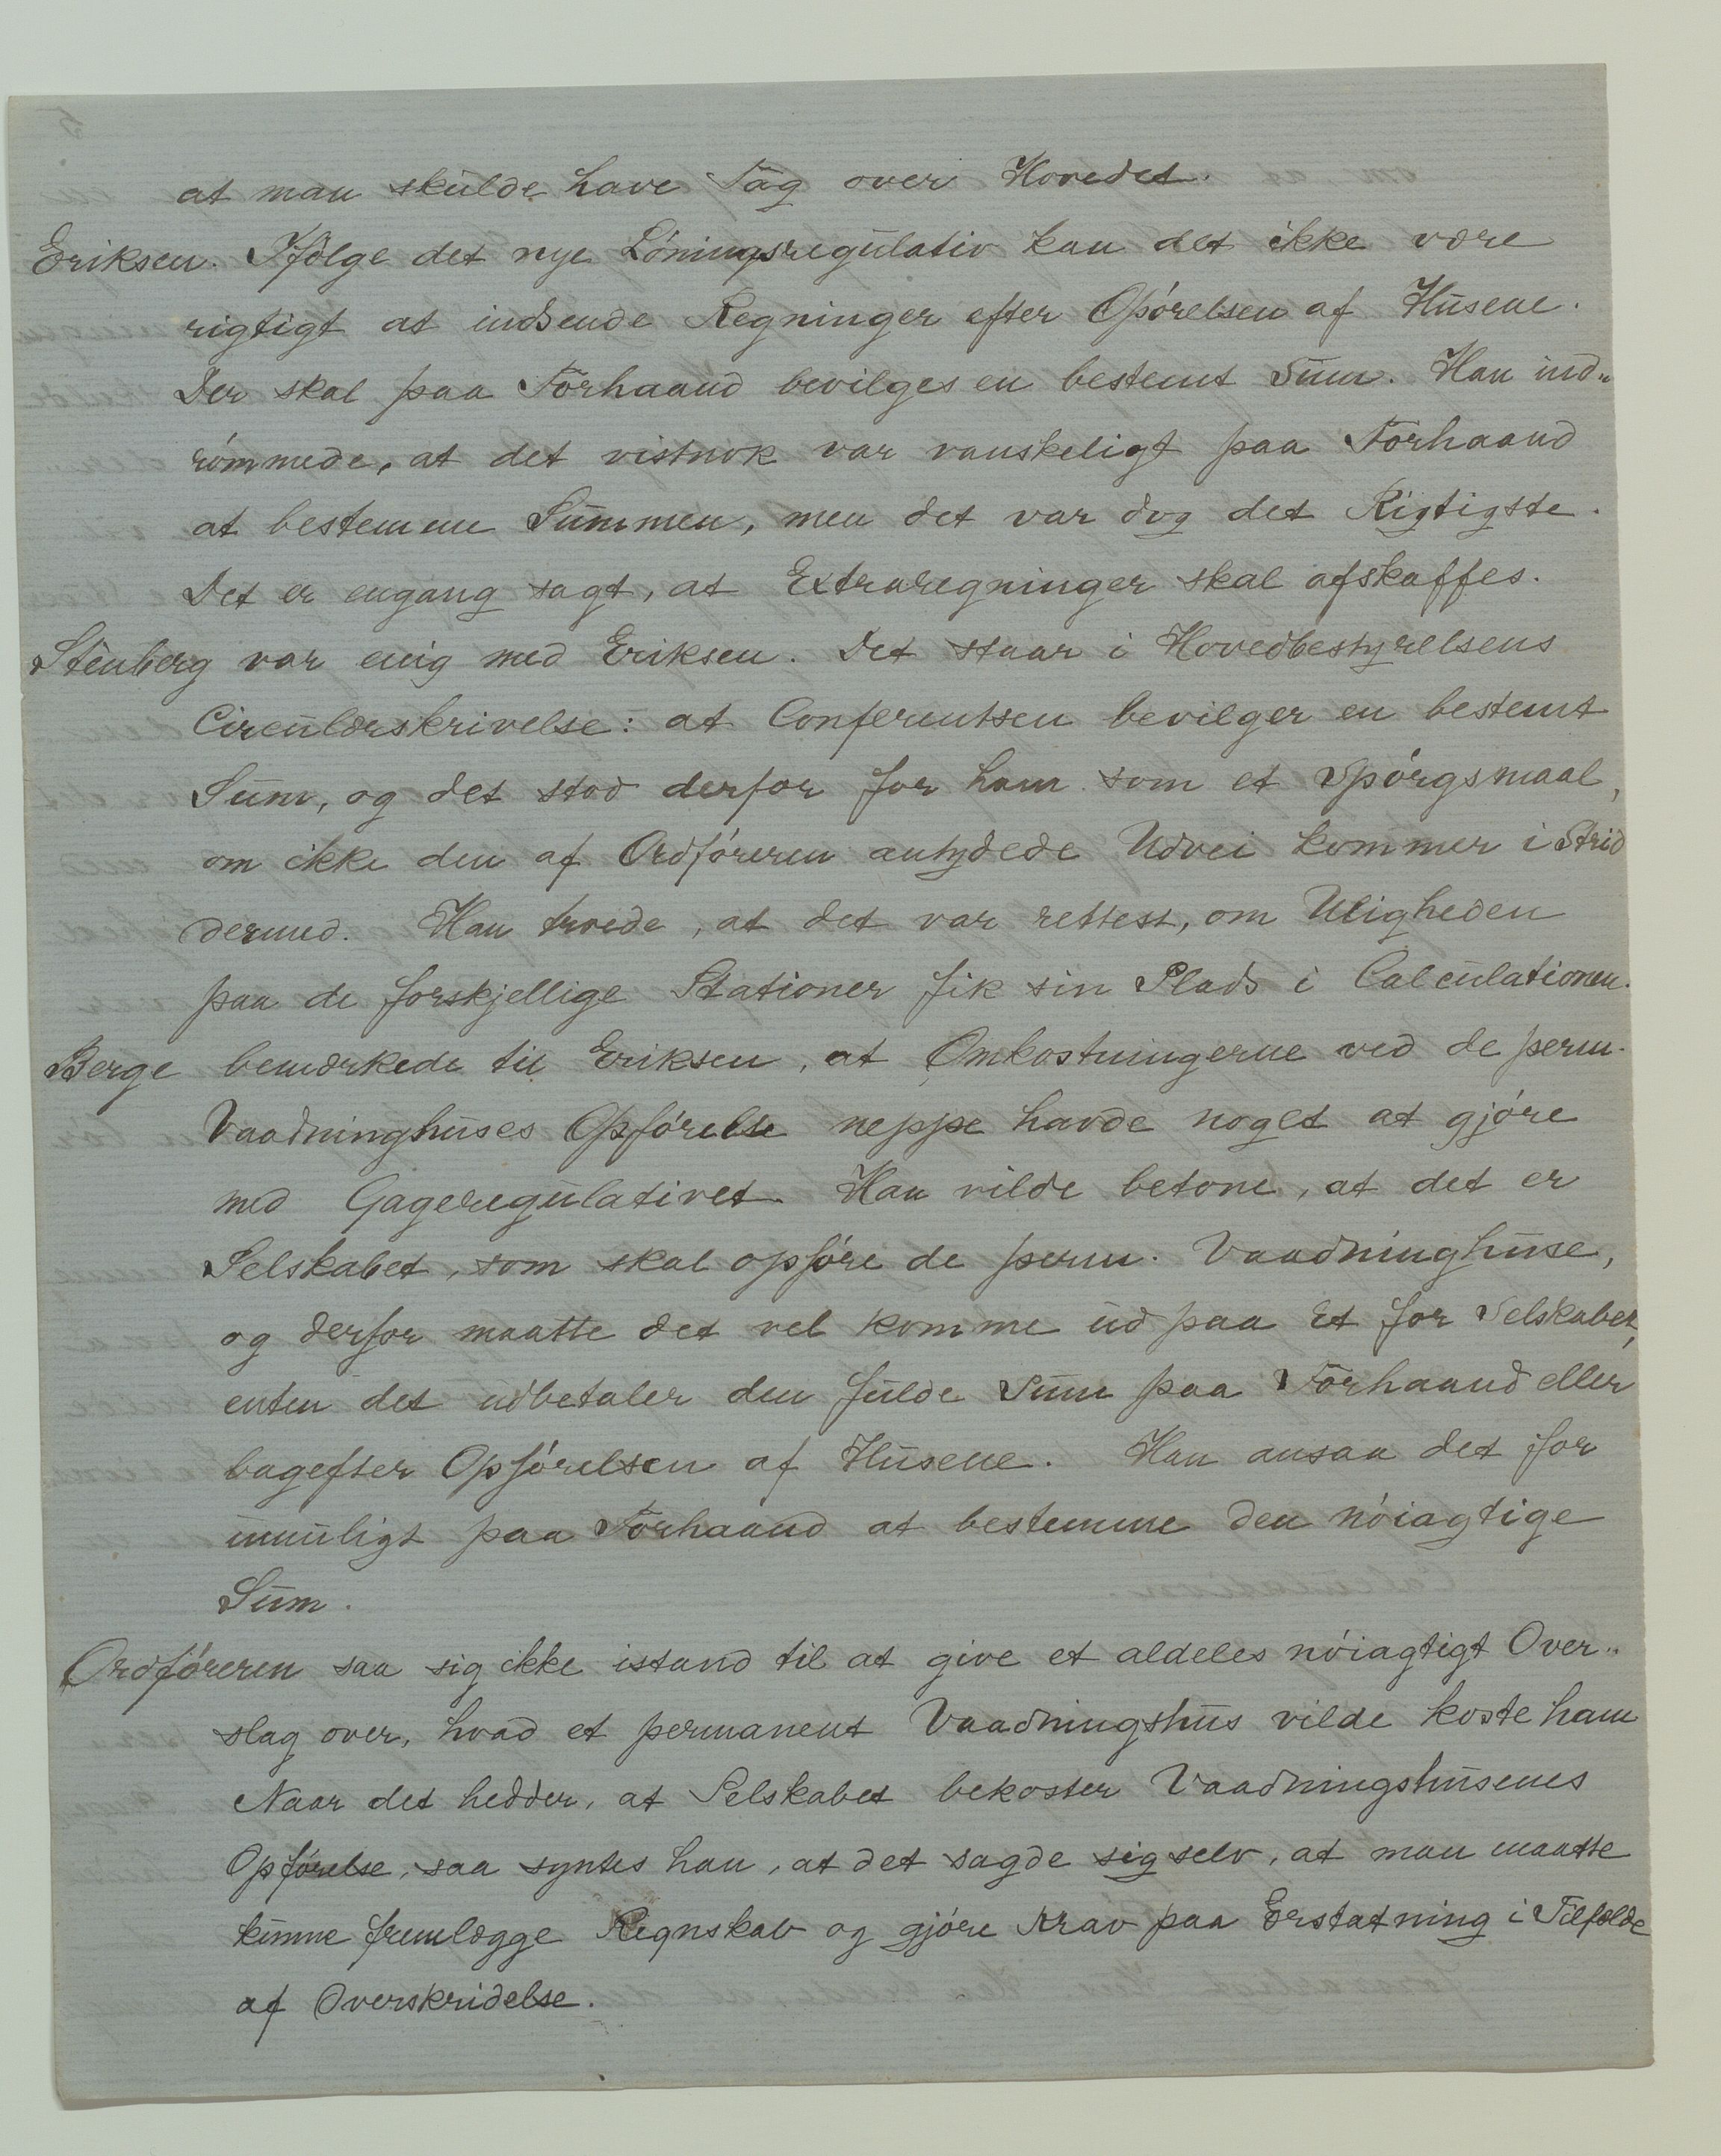 at man skulde have Tag over Hovedet.
Eriksen. Ifölge det nye Löningsregulativ kan det ikke være
rigtigt at indsende Regninger efter Opörelsen af Husene.
Der skal paa Forhaand bevilges en bestemt Sum. Han ind-
römmede, at det vistnok var vanskeligt paa Forhaand
at bestemme Summen, men det var dog det Rigtigste.
Det er engang sagt, at Extraregninger skal afskaffes.
Stenberg var enig med Eriksen. Det staar i Hovedbestyrelsens
Circulærskrivelse: at Conferentsen bevilger en bestemt
Sum, og det stod derfor for ham som et Spörgsmaal,
om ikke den af Ordföreren antydede Udvei kommer i Strid
dermed. Han troede, at det var rettest, om Uligheden
paa de forskjellige Stationer fik sin Plads i Calculationen.
Berge bemærkede til Eriksen, at Omkostningerne ved de perm.
Vaadninghuses Opförelse neppe havde noget at gjöre
med Gageregulativet. Han vilde betone, at det er
Selskabet, som skal opföre de perm. Vaadninghuse,
og derfor maatte det vel komme ud paa Et for Selskabet,
enten det udbetaler den fulde Sum paa Forhaand eller
bagefter Opförelsen af Husene. Han ansaa det for
umuligt paa Forhaand at bestemme den nöiagtige
Sum.
Ordföreren saa sig ikke istand til at give et aldeles nöiagtigt Over-
slag over, hvad et permanent Vaadningshus vilde koste ham
Naar det hedder, at Selskabet bekoster Vaadningshusenes
Opförelse, saa syntes han, at det sagde sig selv, at man maatte
kunne fremlægge Regnskab og gjöre Krav paa Erstatning i Tilfælde
af Overskridelse.